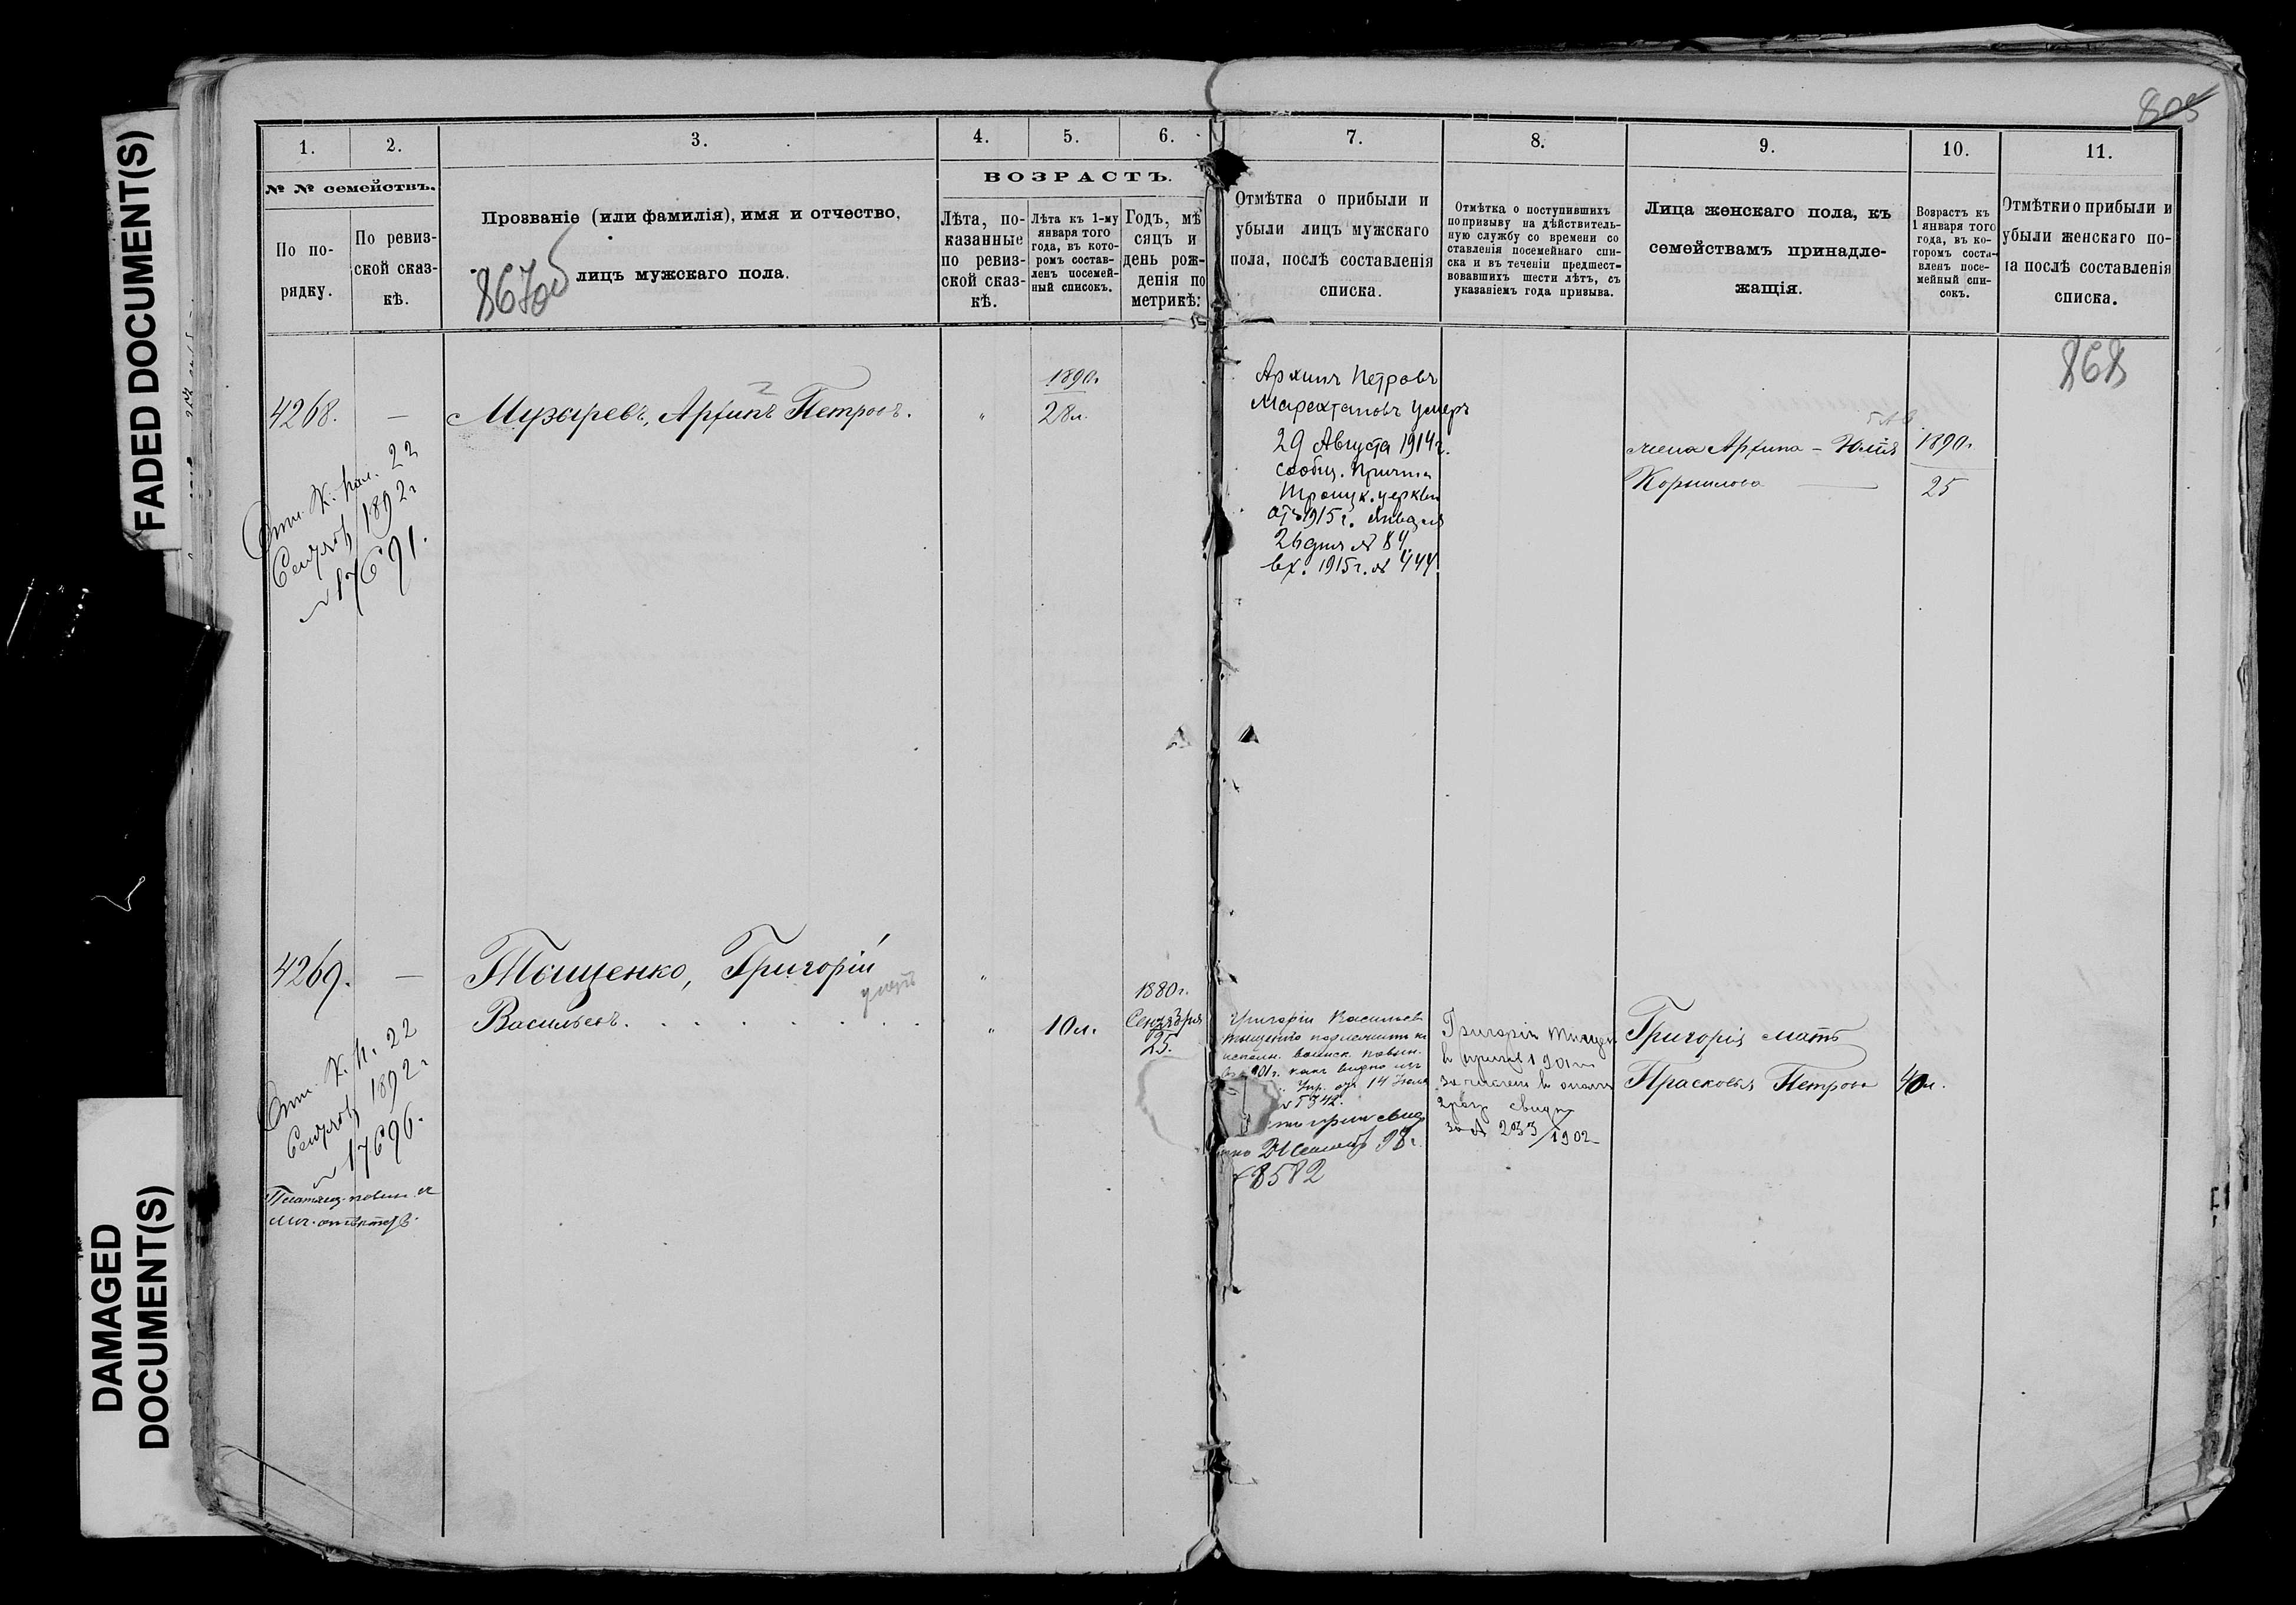 FADED DOCUMENT(S)
DAMAGED
DOCUMENT(S)
805
1. 2. 3. 4. 5. 6. 7. 8. 9. 10. 11.
№ № семействъ.
По по-
рядку.
По ревиз-
ской сказ-
кѣ.
Прозваніе (или фамилія), имя и отчество,
лицъ мужскаго пола.
867об
ВОЗРАСТЪ.
Лѣта, по-
казанные
по ревиз-
ской сказ-
кѣ.
Лѣта къ 1-му
января того
года, въ кото-
ромъ состав-
ленъ посемей-
ный списокъ.
Годъ, мѣ
сяцъ и
день рож-
денія по
метрикѣ:
Отмѣтка о прибыли и
убыли лицъ мужскаго
пола, послѣ составленія
списка.
Отмѣтка о поступившихъ
по призыву на дѣйствитель-
ную службу со времени со
ставленія посемейнаго спи-
ска и въ теченіи предшест-
вовавшихъ шести лѣтъ, съ
указаніемъ года призыва.
Лица женскаго пола, къ
семействамъ принадле-
жащія.
Возрастъ къ
1 января того
года, въ ко-
торомъ соста-
вленъ посе-
мейный спи-
сокъ.
Отмѣтки о прибыли и
убыли женскаго по-
ла послѣ составленія
списка.
868
4268. —
К. пал. 22
1892г
№ 17691.
Архипъ Петровъ.
"
1890г
28л.
Архипъ Петровъ
умеръ
29 Августа 1914г.
сообщ. Причта
Троицк. церкви
отъ 1915г. Января
26 дня № 84.
вх. 1915г. № 444.
жена Архипа — Юлія
Корнилова —
1890г.
25
4269. —
К. п. 22
1892г
№ 17696.
Тыщенко, Григорій
Васильевъ. . . . . . . .
"
" 10л.
1880г.
Сентября
25.
Григорій Васильев
Тыщенко подлежитъ къ
исполн. воинск. повин.
какъ видно изъ
Упр. отъ 14 Іюля
№ 5342.
98г.
№ 8582
Григорій
1901
за № 233/1902
Григорія мать
Прасковья Петрова
40л.